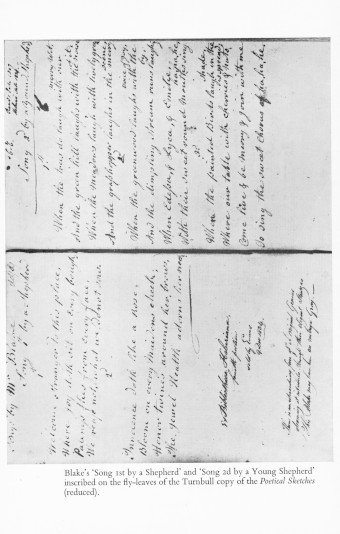 Songs by Mr Blake
Song 1st by a Shepherd
1st
Welcome stranger to this place,
Where joy doth sit on every bough,
Paleness flies from every face,
We reap not, what we do not sow.
2d
Innocence doth like a Rose,
Bloom on every Maidens cheek,
Honor twines around her brows,
The jewel Health adorns her neck
Song 2d by a Young Shepherd
1st
When the trees do laugh with our merry wit,
And the green hill laughs with the noise of it,
When the meadows laugh with lively green
And the grasshopper laughs in the merry scene,
2d
When the greenwood laughs with the voice of joy,
And the dimpling stream runs laughing by
When Edessa, & Lyca, & Emilie,
With their sweet round mouths sing ha, ha, he,
3d
When the painted Birds laugh in the shade,
Where our table with cherries & nuts is spread
Come live & be merry & join with me
To sing the sweet chorus of ha, ha, he,
Blake's 'Song 1st by a Shepherd' and 'Song 2d by a Young Shepherd'
inscribed on the fly-leaves of the Turnbull copy of the Poetical Sketches
(reduced).